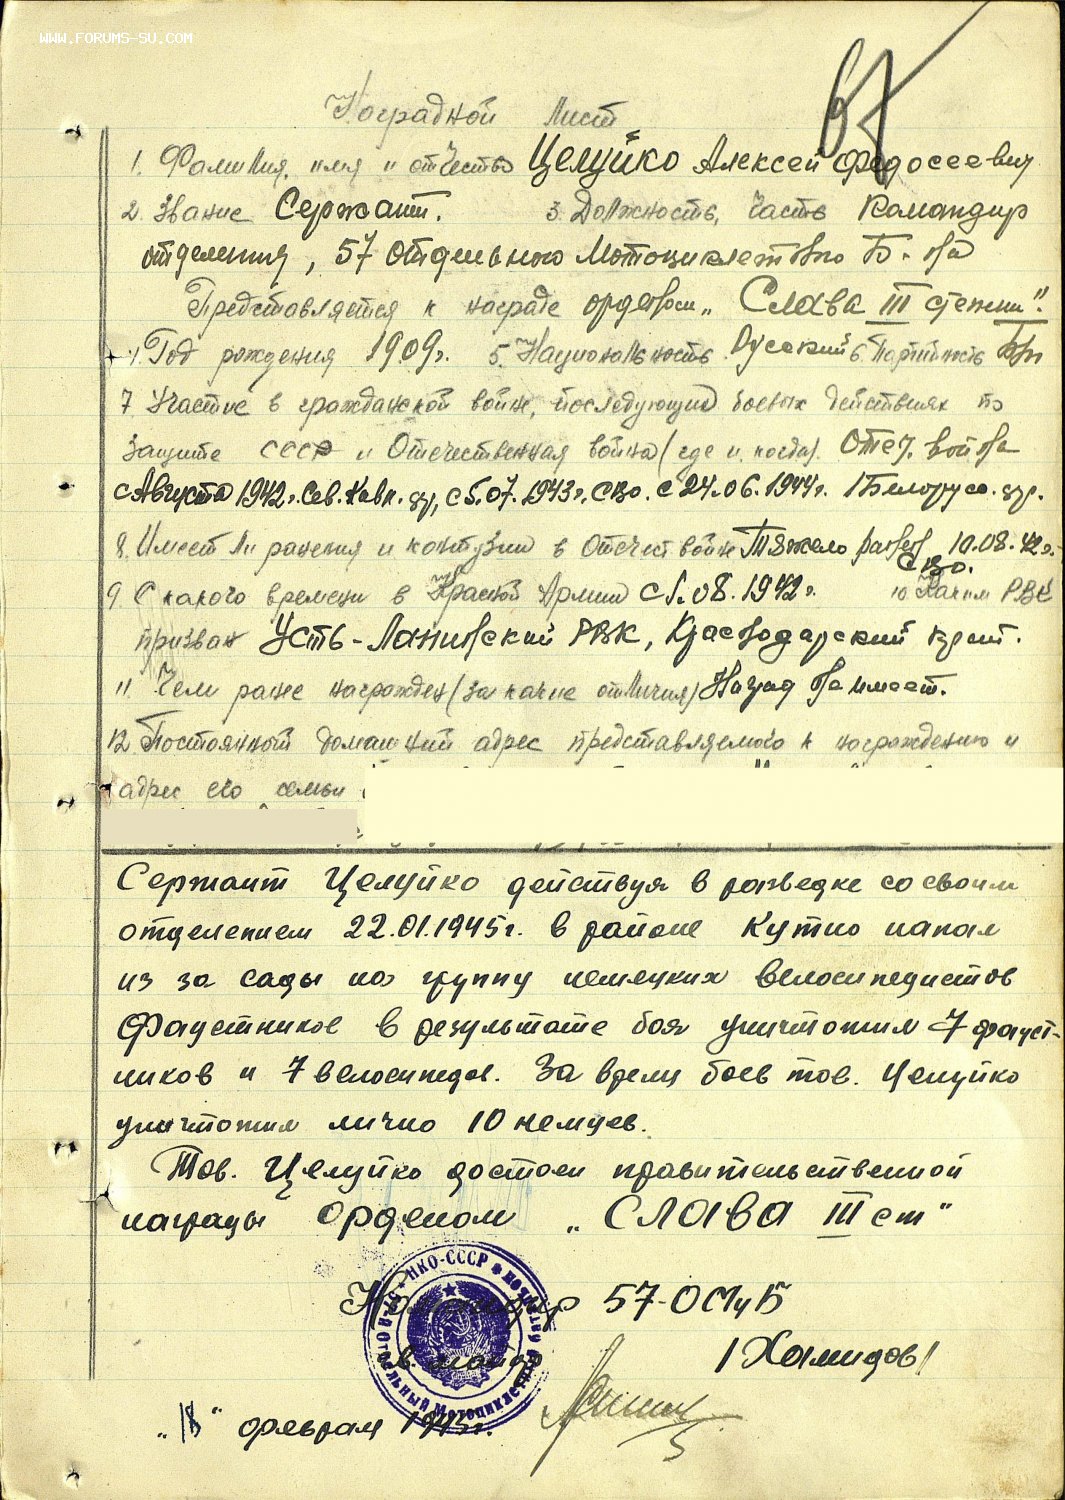 WWW.FORUMS-SU.COM
67
Наградной Лист
1. Фамилия, имя и отчество Целуйко Алексей Федосеевич
2. Звание Сержант. 3. Должность, часть Командир
отделения, 57 отдельного Мотоциклетного Б-на
Представляется к награде орденом „Слава III степени".
4. Год рождения 1909г. 5. Национальность Русский 6. Партийность б/п
7 Участие в гражданской войне, последующих боевых действиях по
защите СССР и Отечественная война (где и когда). Отеч. война
с Августа 1942г. Сев. Кавк. фр, с 5.07.1943г. СЗФ. с 24.06.1944г. 1 Белорусс. фр.
8. Имеет ли ранения и контузии в Отечест войне Тяжело ранен 10.08.42г.
9. С какого времени в Красной Армии с 1.08.1942г. 10 Каким РВК
призван Усть-Лабинский РВК, Краснодарский край.
11. Чем ранее награжден (за какие отличия) Наград не имеет.
12 Постоянный домашний адрес представляемого к награждению и
адрес его семьи
Сержант Целуйко действуя в разведке со своим
отделением 22.01.1945г. в районе Кутно напал
из за сады на группу немецких велосипедистов
Фаустников в результате боя уничтожил 7 фауст-
ников и 7 велосипедов. За время боев тов. Целуйко
уничтожил лично 10 немцев.
Тов. Целуйко достоен правительственной
награды Орденом „СЛАВА III ст"
НКО-СССР
57-й Отдельный Мотоциклетный
Командир 57-ОМцБ
гв. майор /Хамидов/
„18" февраля 1945г.